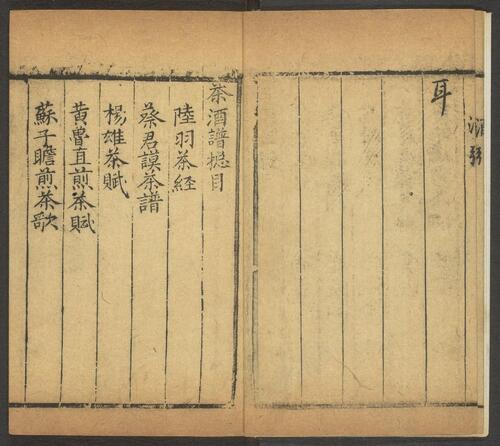 耳
茶酒譜揔目
陸羽茶経
蔡君謨茶譜
楊雄茶賦
黄魯直煎茶賦
蘇子瞻煎茶歌